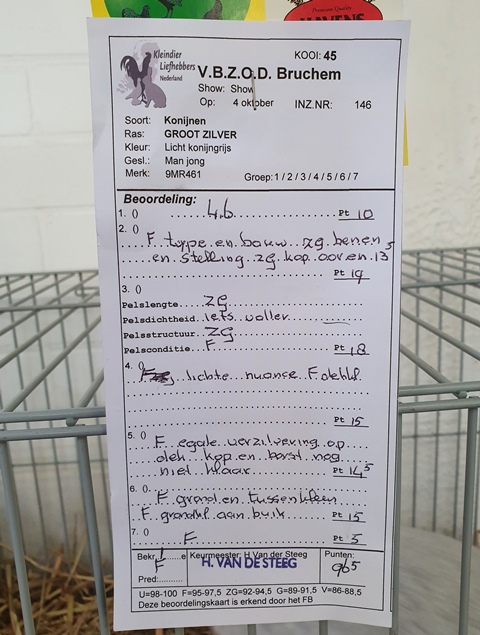 Premium Quality
HAVENS
Kleindier
Liefhebbers
Nederland
KOOI: 45
V.B.Z.O.D. Bruchem
Show: Show
Op: 4 oktober INZ.NR: 146
Soort: Konijnen
Ras: GROOT ZILVER
Kleur: Licht konijngrijs
Gesl.: Man jong
Merk: 9MR461 Groep: 1 / 2 / 3 / 4 / 5 / 6 / 7
Beoordeling:
1. () 4.6 Pt 10
2. ()
F type en bouw zg benen
en stelling zg kop oor en 13 5
Pt 19
3. ()
Pelslengte ZG
Pelsdichtheid iets voller
Pelsstructuur ZG
Pelsconditie F Pt 18
4. ()
lichte nuance F dekkl
Pt 15
5. ()
F egale verzilvering op
dek kop en borst nog
niet klaar Pt 14 5
6. ()
F grond en tussenkleur
F grondkl aan buik Pt 15
7. () F Pt 5
Bekr. e F
Keurmeester: H Van der Steeg
H. VAN DE STEEG
Punten: 96 5
Pred:
U=98-100 F=95-97,5 ZG=92-94,5 G=89-91,5 V=86-88,5
Deze beoordelingskaart is erkend door het FB